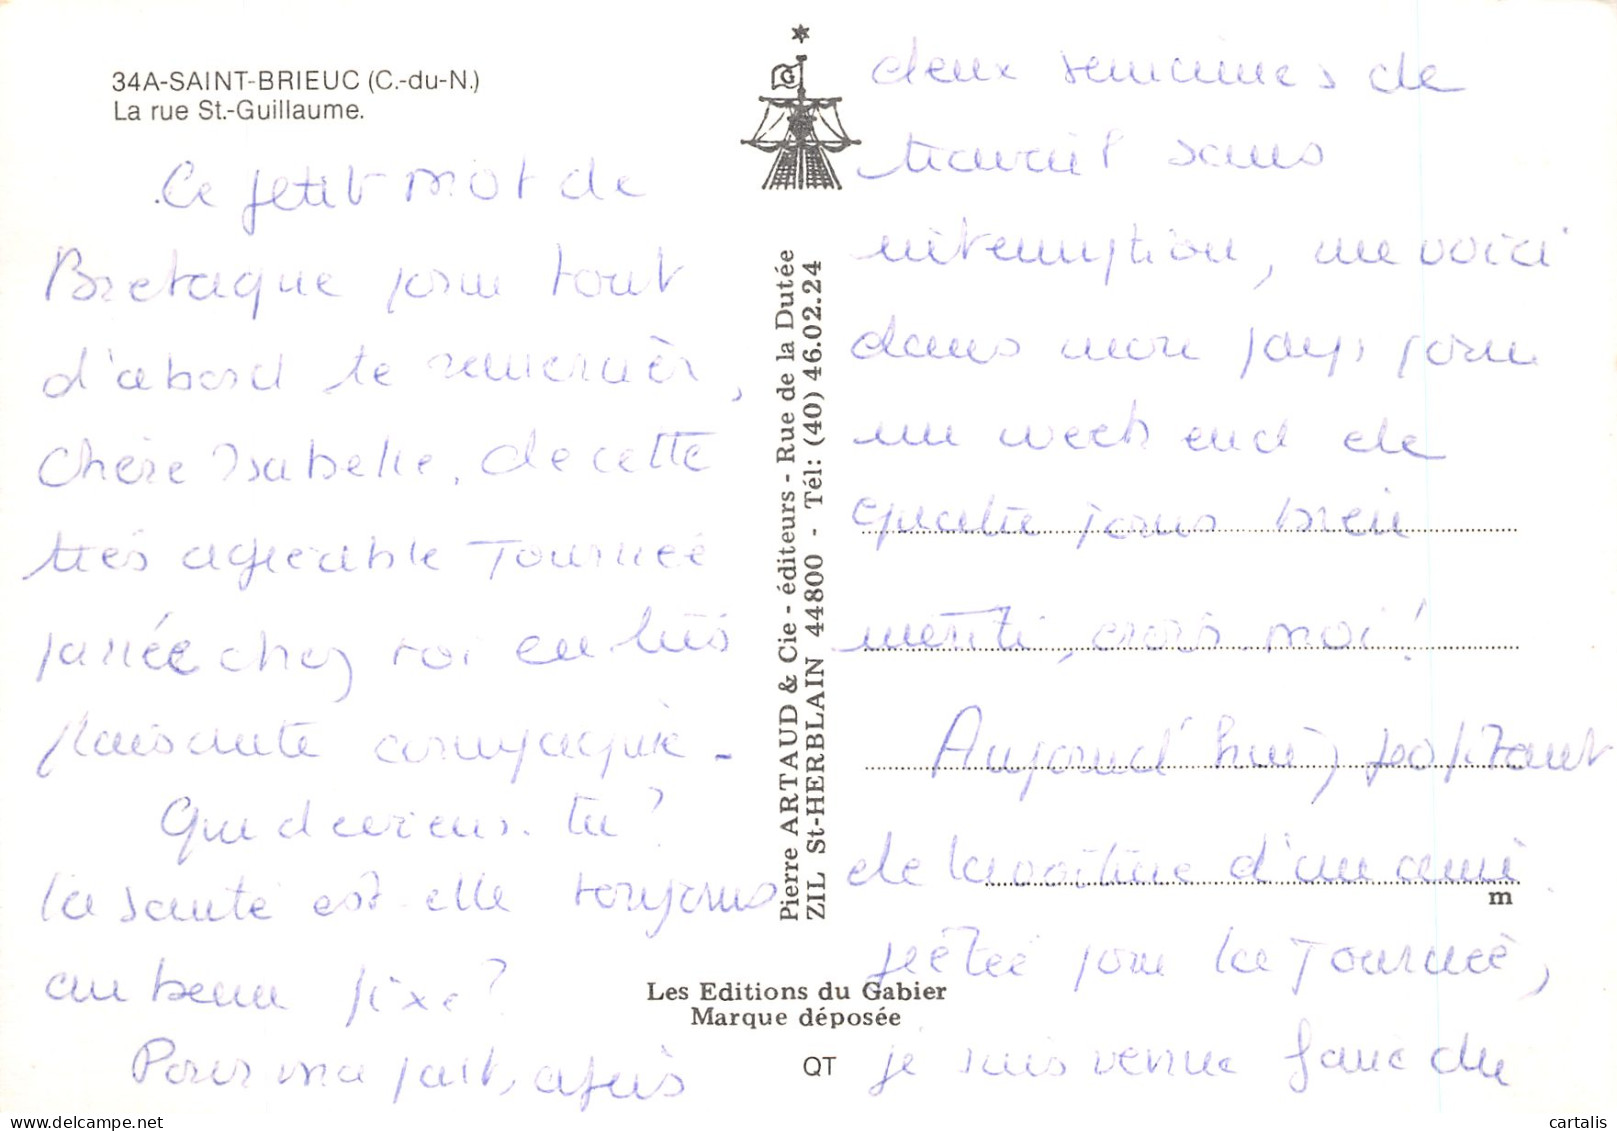 34A-SAINT-BRIEUC (C.-du-N.)
La rue St.-Guillaume.
Ce petit mot de
Bretagne pour tout
d'abord te remercier,
chère Isabelle, de cette
très agréable Tournée
passée chez toi en très
plaisante compagnie -
Que deviens-tu ?
la santé est-elle toujours
au beau fixe ?
Pour ma part, après
deux semaines de
travail sans
interruption, me voici
dans mon pays pour
un week end de
quatre jours bien
mérité, crois moi !
Aujourd'hui, profitant
de la voiture d'un ami
prêtée pour la Tournée,
je suis venue faire du
Pierre ARTAUD & Cie - éditeurs - Rue de la Dutée
ZIL St-HERBLAIN 44800 - Tél: (40) 46.02.24
m
Les Editions du Gabier
Marque déposée
QT
cartalis